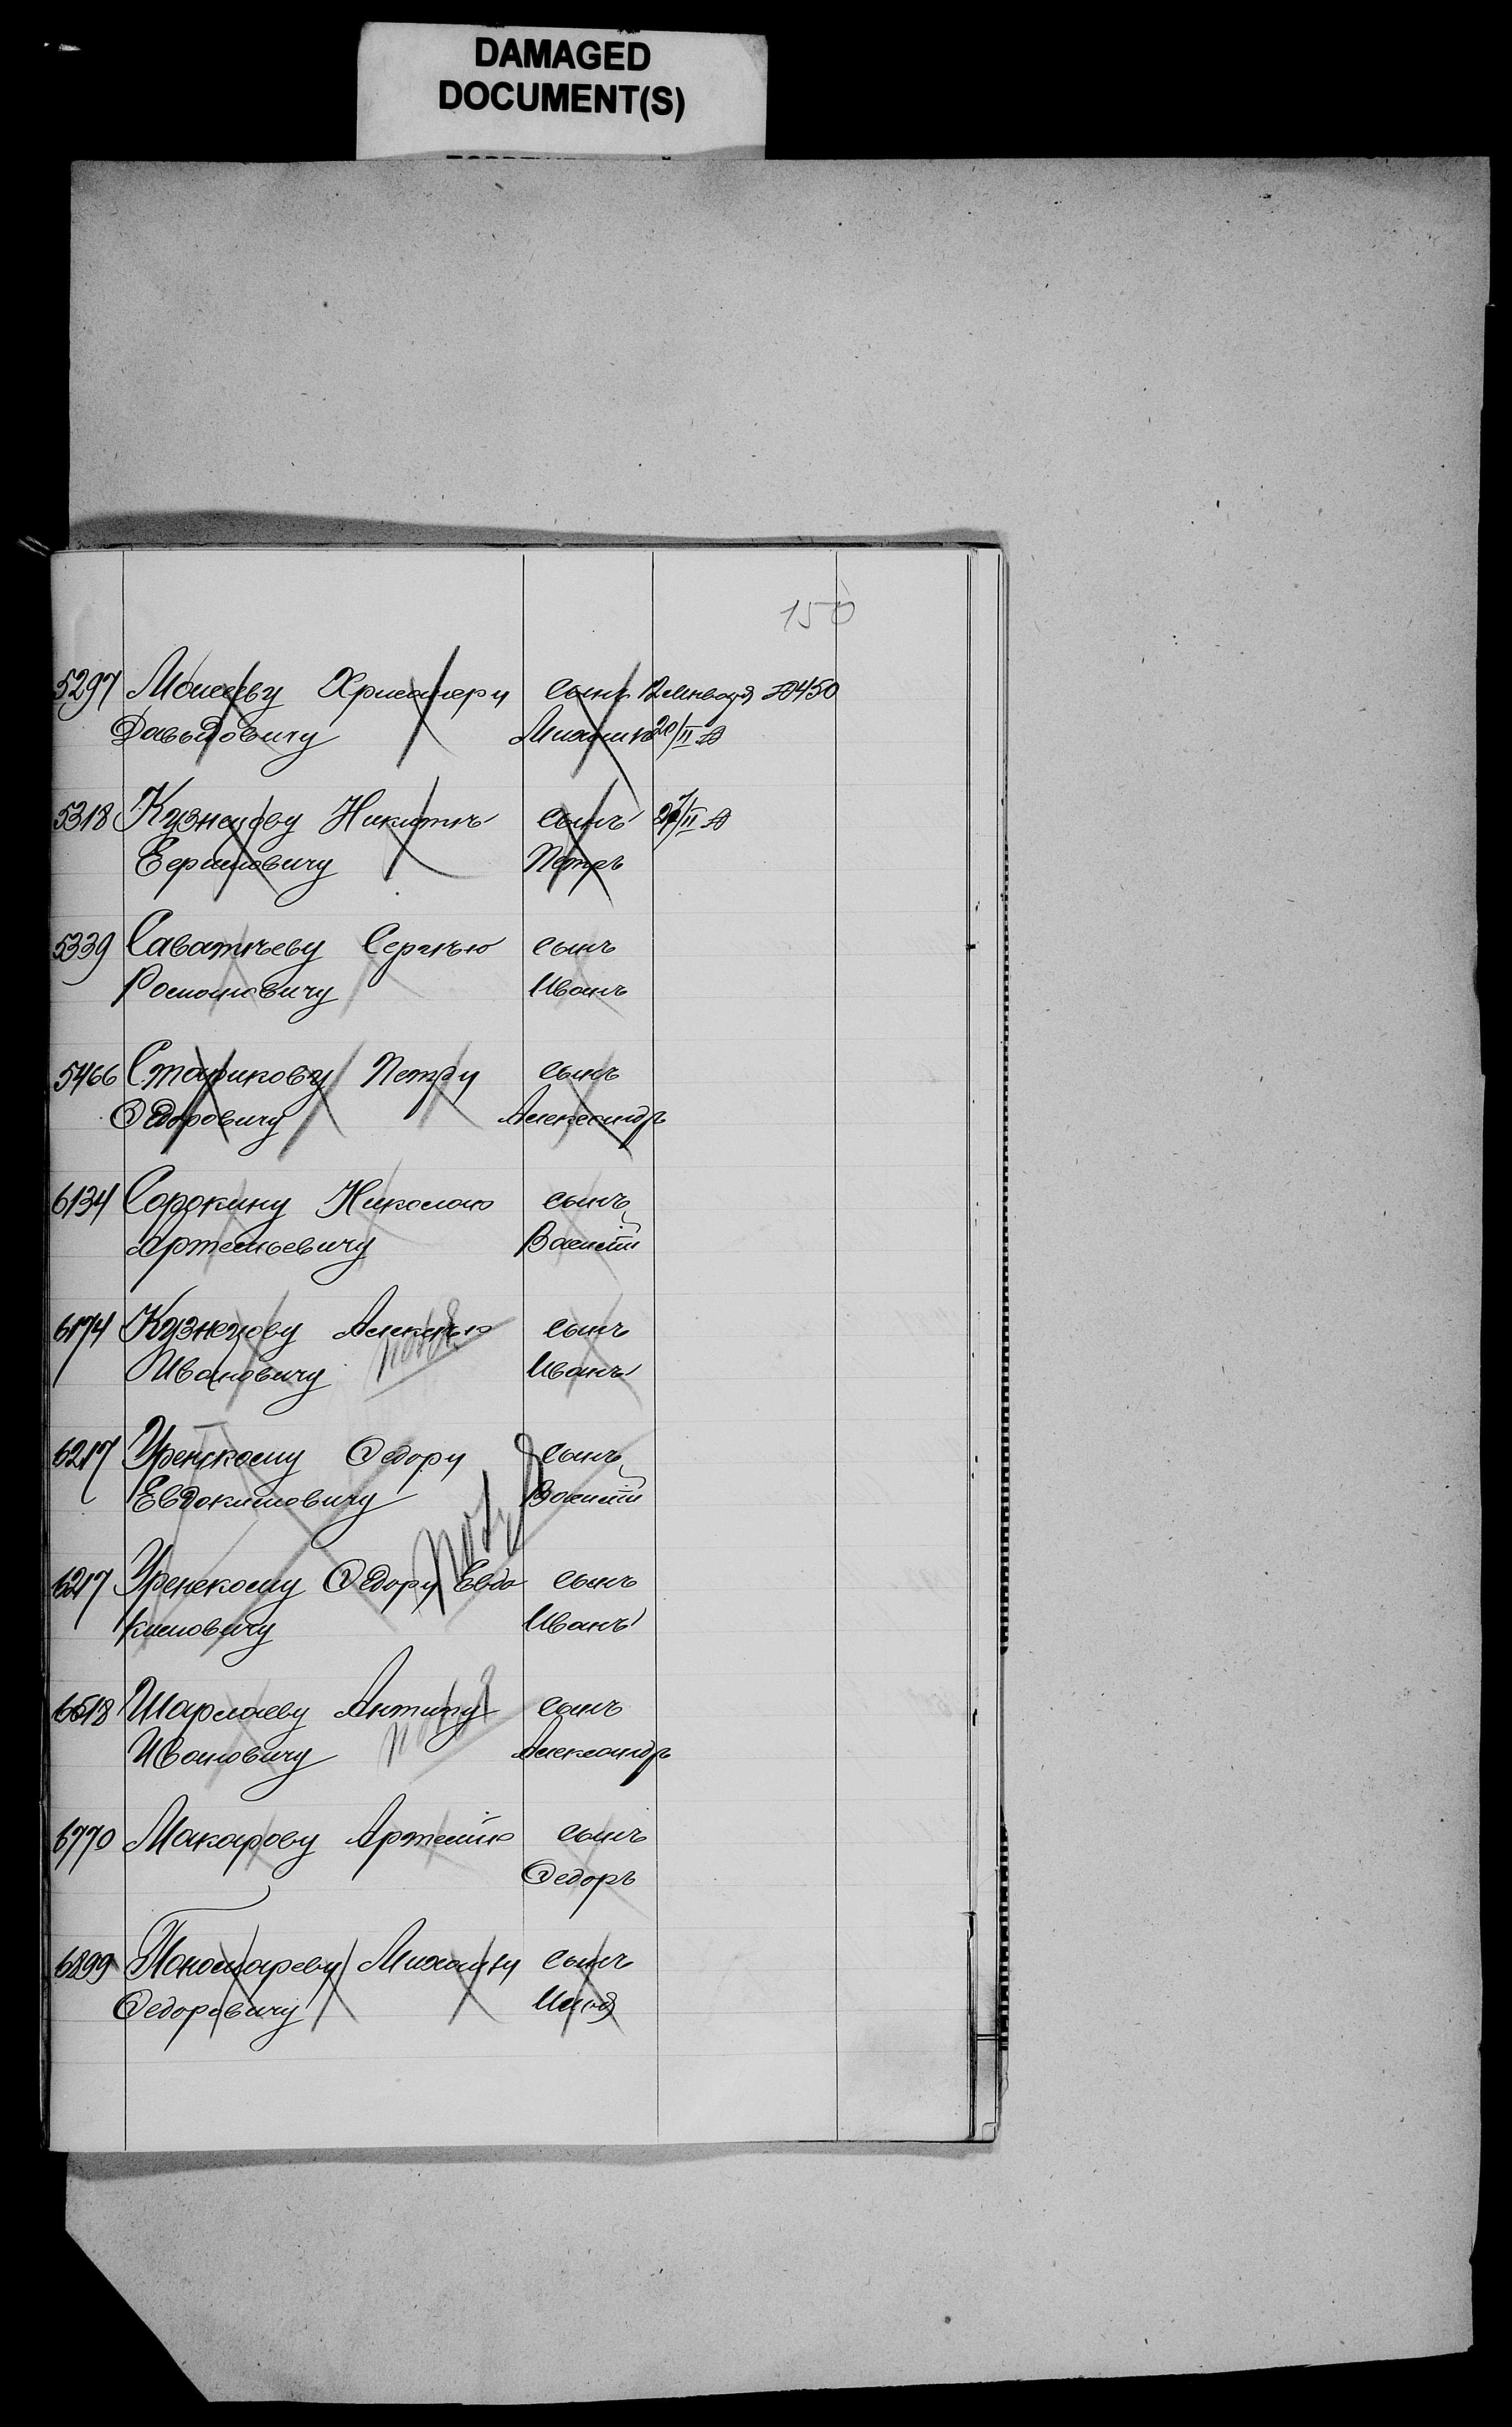 DAMAGED
DOCUMENT(S)
150
5297 Моисееву сынъ 12 Января 450
Давыдовичу Михаилъ 20/II
5318 Кузнецову Никитѣ сынъ /II
Петръ
5339 Саватѣеву Сергѣю сынъ
Романовичу Иванъ
5466 Старикову Петру сынъ
Федоровичу Александръ
6134 Сорокину Николаю сынъ
Артемьевичу Василій
6174 Кузнецову Алексѣю сынъ
Ивановичу Иванъ
6217 Уренскому Федору сынъ
Евдокимовичу Василій
6217 Уренскому Федору Евдо сынъ
кимовичу Иванъ
6518 Шарлаеву Антипу сынъ
Ивановичу Александръ
6770 Макарову Артемію сынъ
Федоръ
6899 Пономареву Михаилу сынъ
Федоровичу Илья